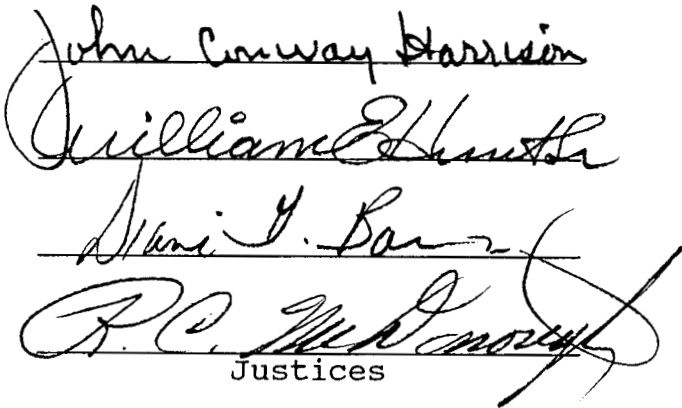 John Conway Harrison
William E Hunt Sr
Diane G. Barz
R. C. McDonough
Justices